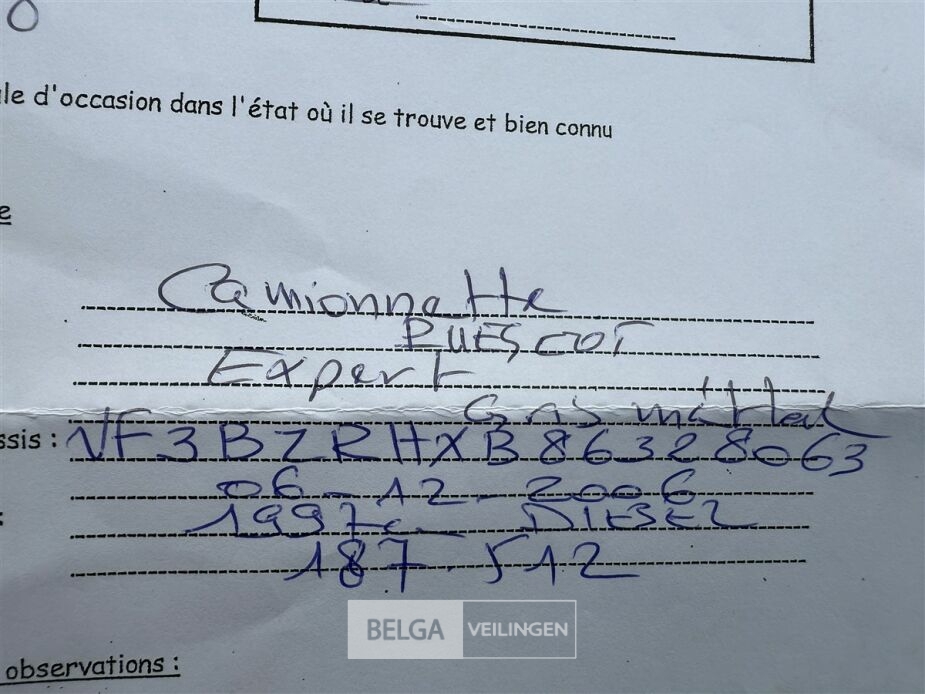 le d'occasion dans l'état où il se trouve et bien connu
e
Camionnette
PUESCOT
Expert
Gris
ssis : VF3BZRHXB86328063
06-12-2006
1997cc DIESEL
187.512
BELGA VEILINGEN
observations :